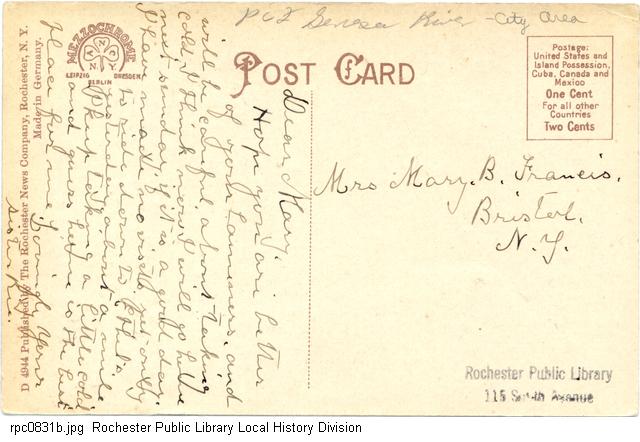 PCZ Genesee River - City Area
MEZZOCHROME
N
N Y
LEIPZIG DRESDEN
BERLIN
POST CARD
Postage:
United States and
Island Possession,
Cuba, Canada and
Mexico
One Cent
For all other
Countries
Two Cents
D 4944 Published by The Rochester News Company, Rochester, N. Y.
Made in Germany.
Dear Mary.
Hope you are better
of your Lameness. and
will be careful about taking
cold. I think now I will go home
next Sunday if it is a good day.
I have made no visit yet only
to ride down to Ethel's
yesterday about a mile
I keep taking a little cold
and guess home is the best
place for me.
Lovingly Your
Sister
Mrs Mary. B. Francis.
Bristol.
N. Y.
Rochester Public Library
115 South Avenue
rpc0831b.jpg Rochester Public Library Local History Division